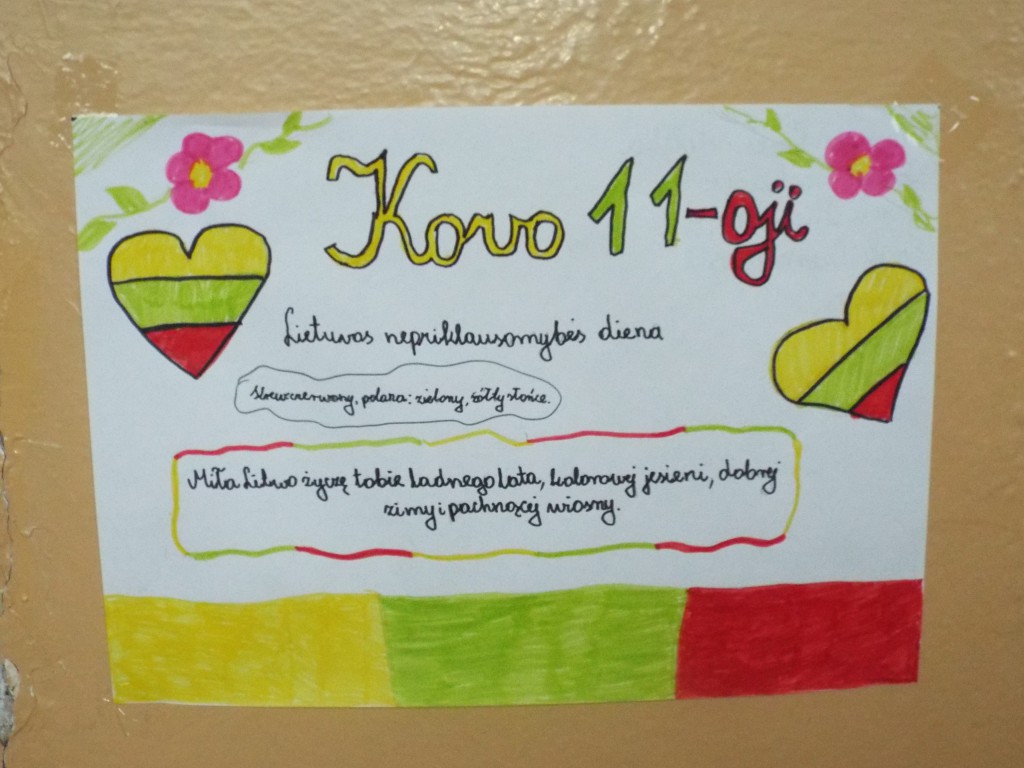 Kovo 11-oji
Lietuvos nepriklausomybės diena
krew:czerwony, polana: zielony, żółty słońce.
Miła Litwo życzę tobie ładnego lata, kolorowej jesieni, dobrej
zimy i pachnącej wiosny.